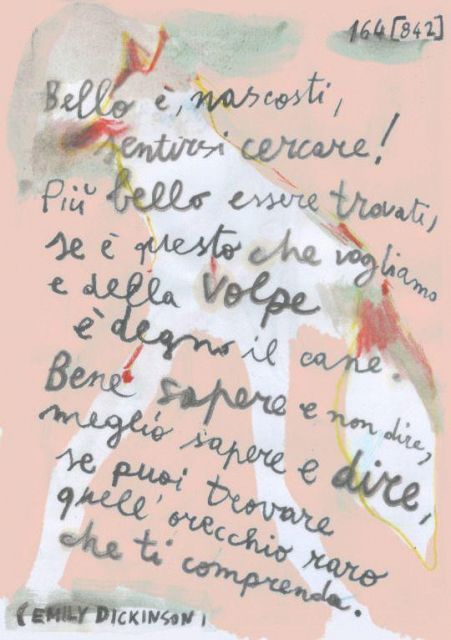 164[842]
Bello è, nascosti,
sentirsi cercare!
Più bello essere trovati,
se è questo che vogliamo
e della volpe
è degno il cane.
Bene sapere e non dire,
meglio sapere e dire,
se puoi trovare
quell'orecchio raro
che ti comprenda.
(EMILY DICKINSON)